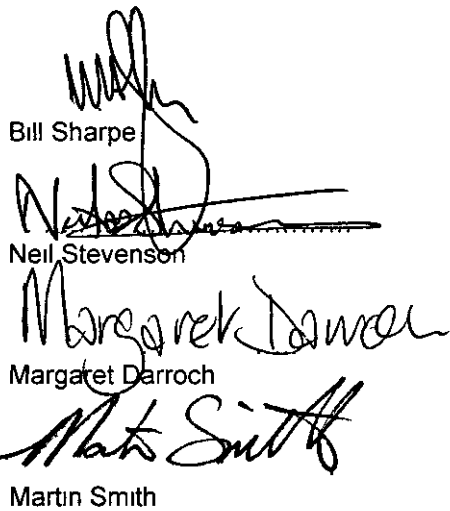 Bill Sharpe
Neil Stevenson
Margaret Darroch
Margaret Darroch
Martin Smith
Martin Smith